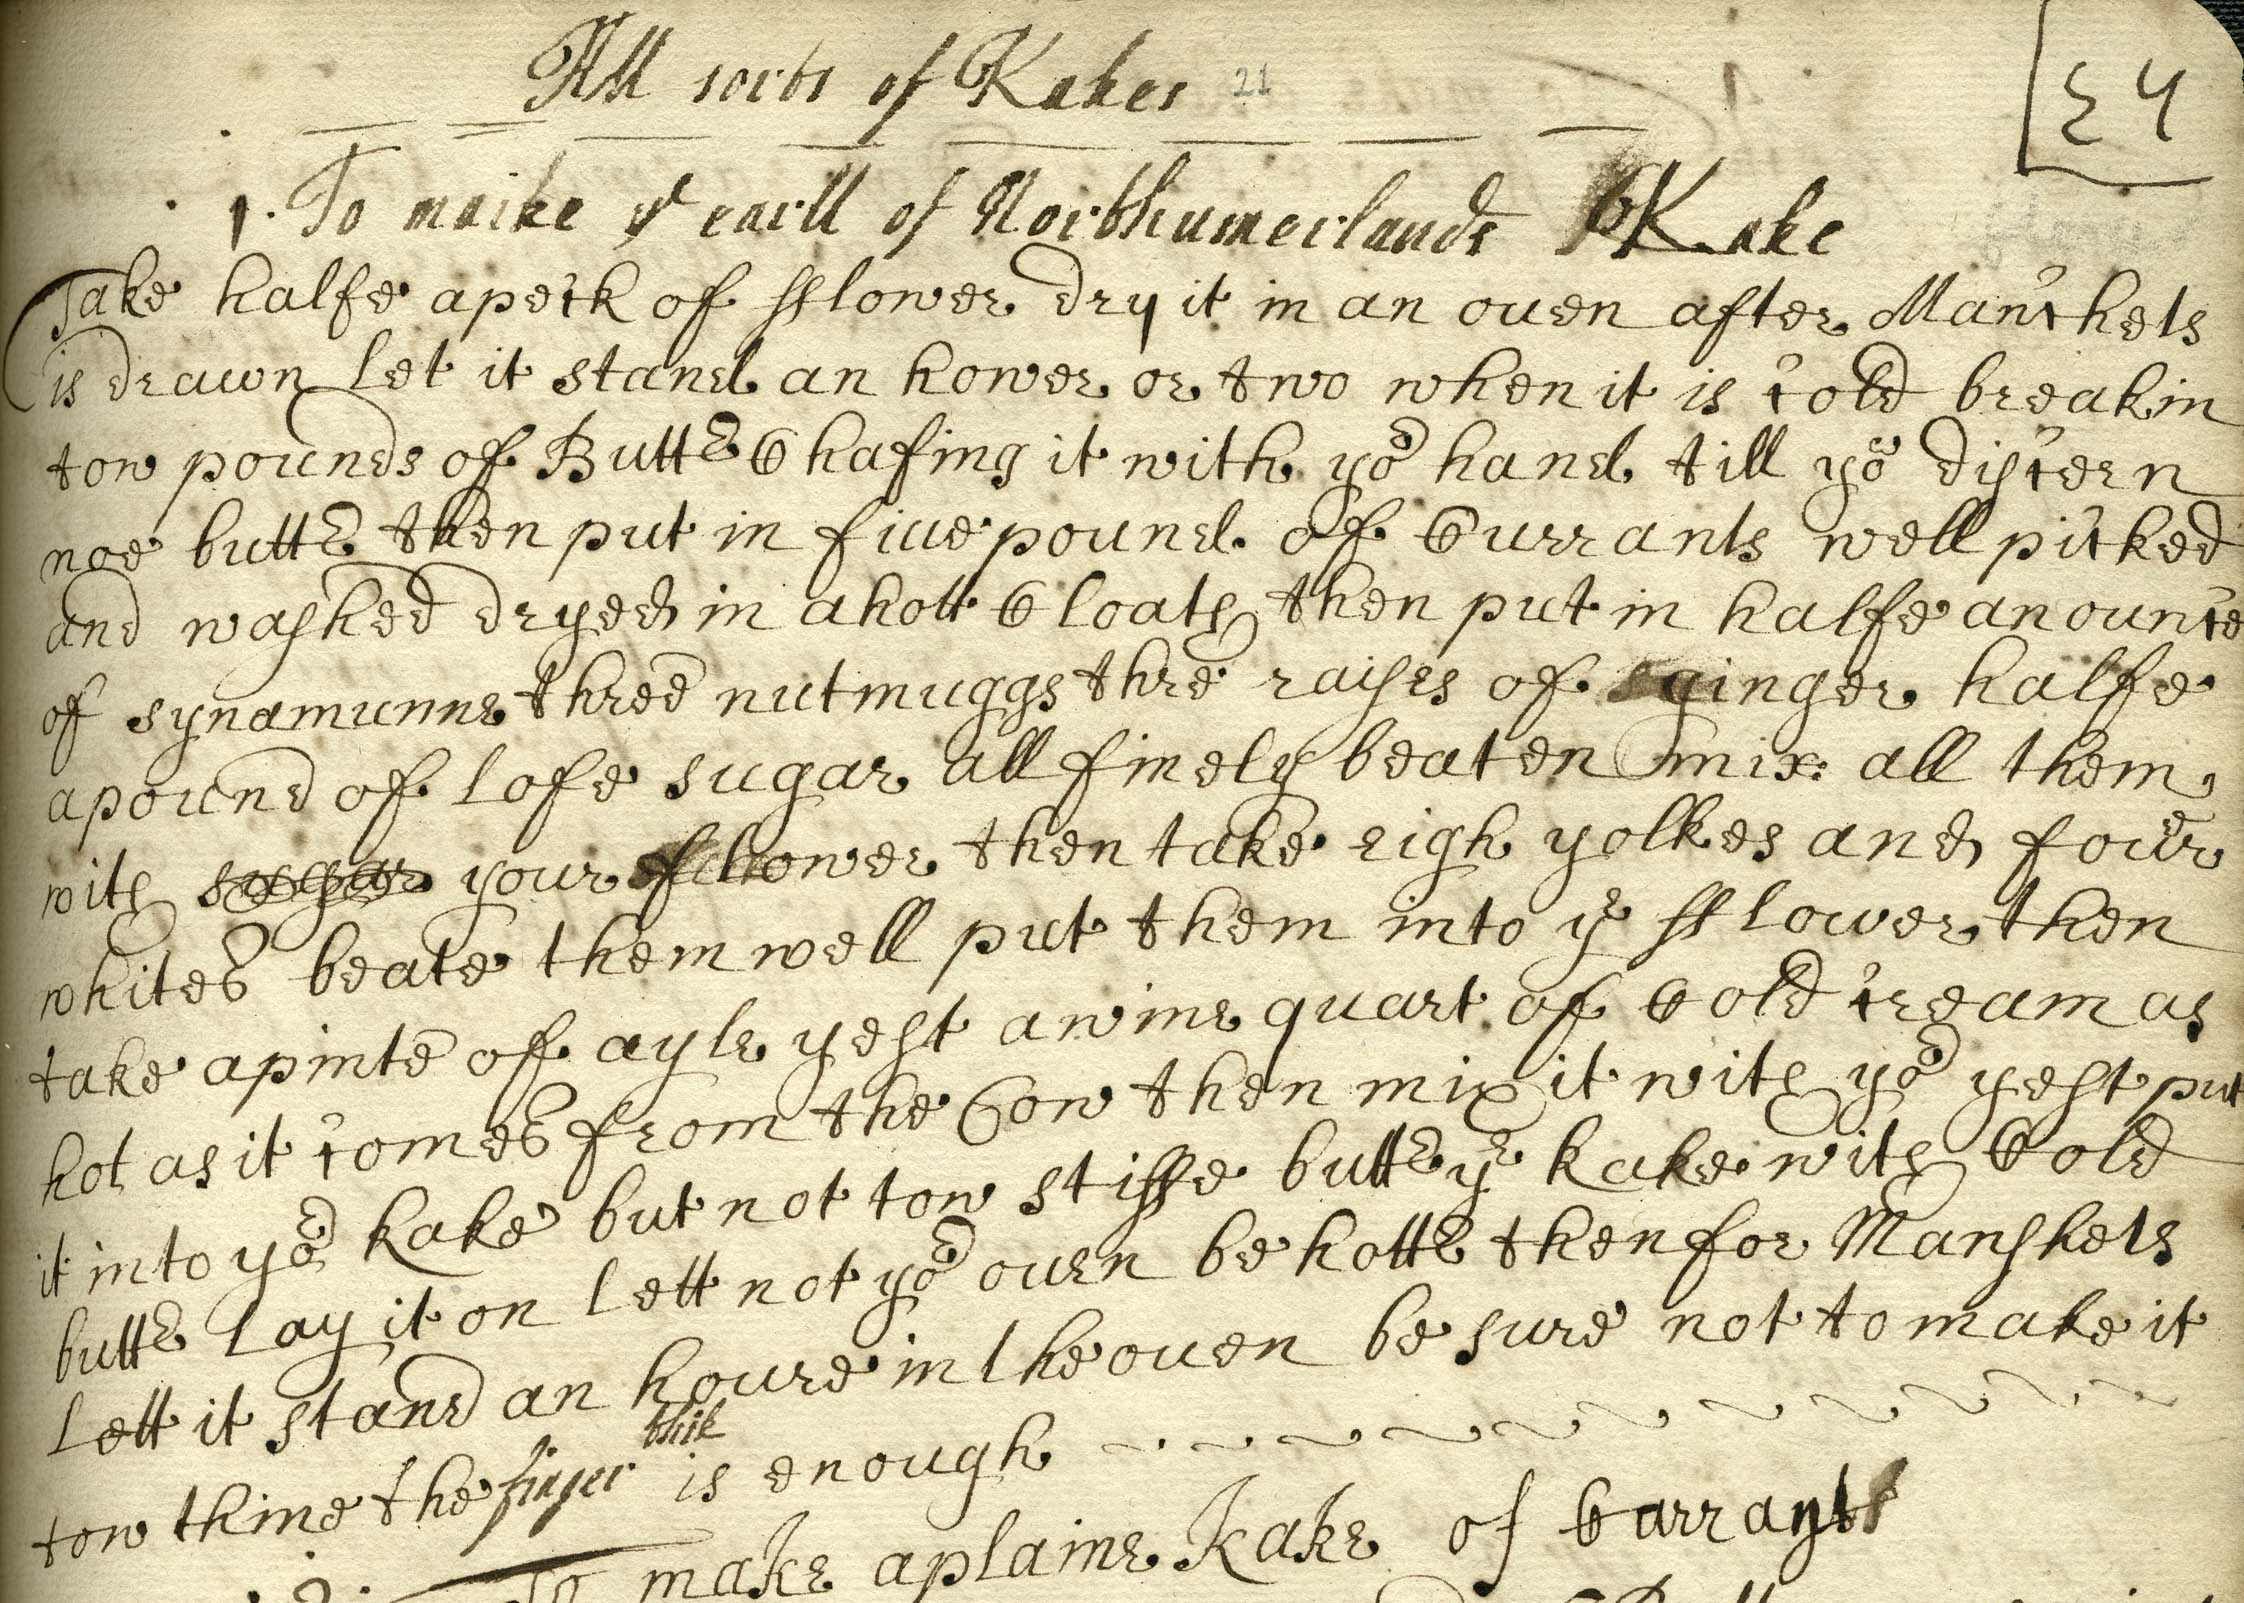 All sorts of Kakes 21
24
1. To maike ye earll of Northumerlands Kake
Take halfe a peick of fflower dry it in an ouen after Manchets
is drawn let it stand an hower or two when it is cold break in
tow pounds of Butter Chafing it with yor hand till you discern
noe butter then put in fiue pound of Currants well picked
and washed dryed in a hott Cloath then put in halfe an ounce
of synamunne three nutmuggs thre rayses of ginger halfe
a pound of lofe sugar all finely beaten mix all them
with sugar your fflower then take eigh yolkes and fower
whites beate them well put them into ye fflower then
take a pinte of ayle yest a wine quart of Cold cream as
hot as it comes from the Cow then mix it with yor yest put
it into yor kake but not tow stiffe butter ye kake with Cold
butter lay it on lett not yor ouen be hotter then for Manshets
lett it stand an houre in the ouen be sure not to make it
tow thine the finger thik is enough
2. To make a plaine Kake of Carrants